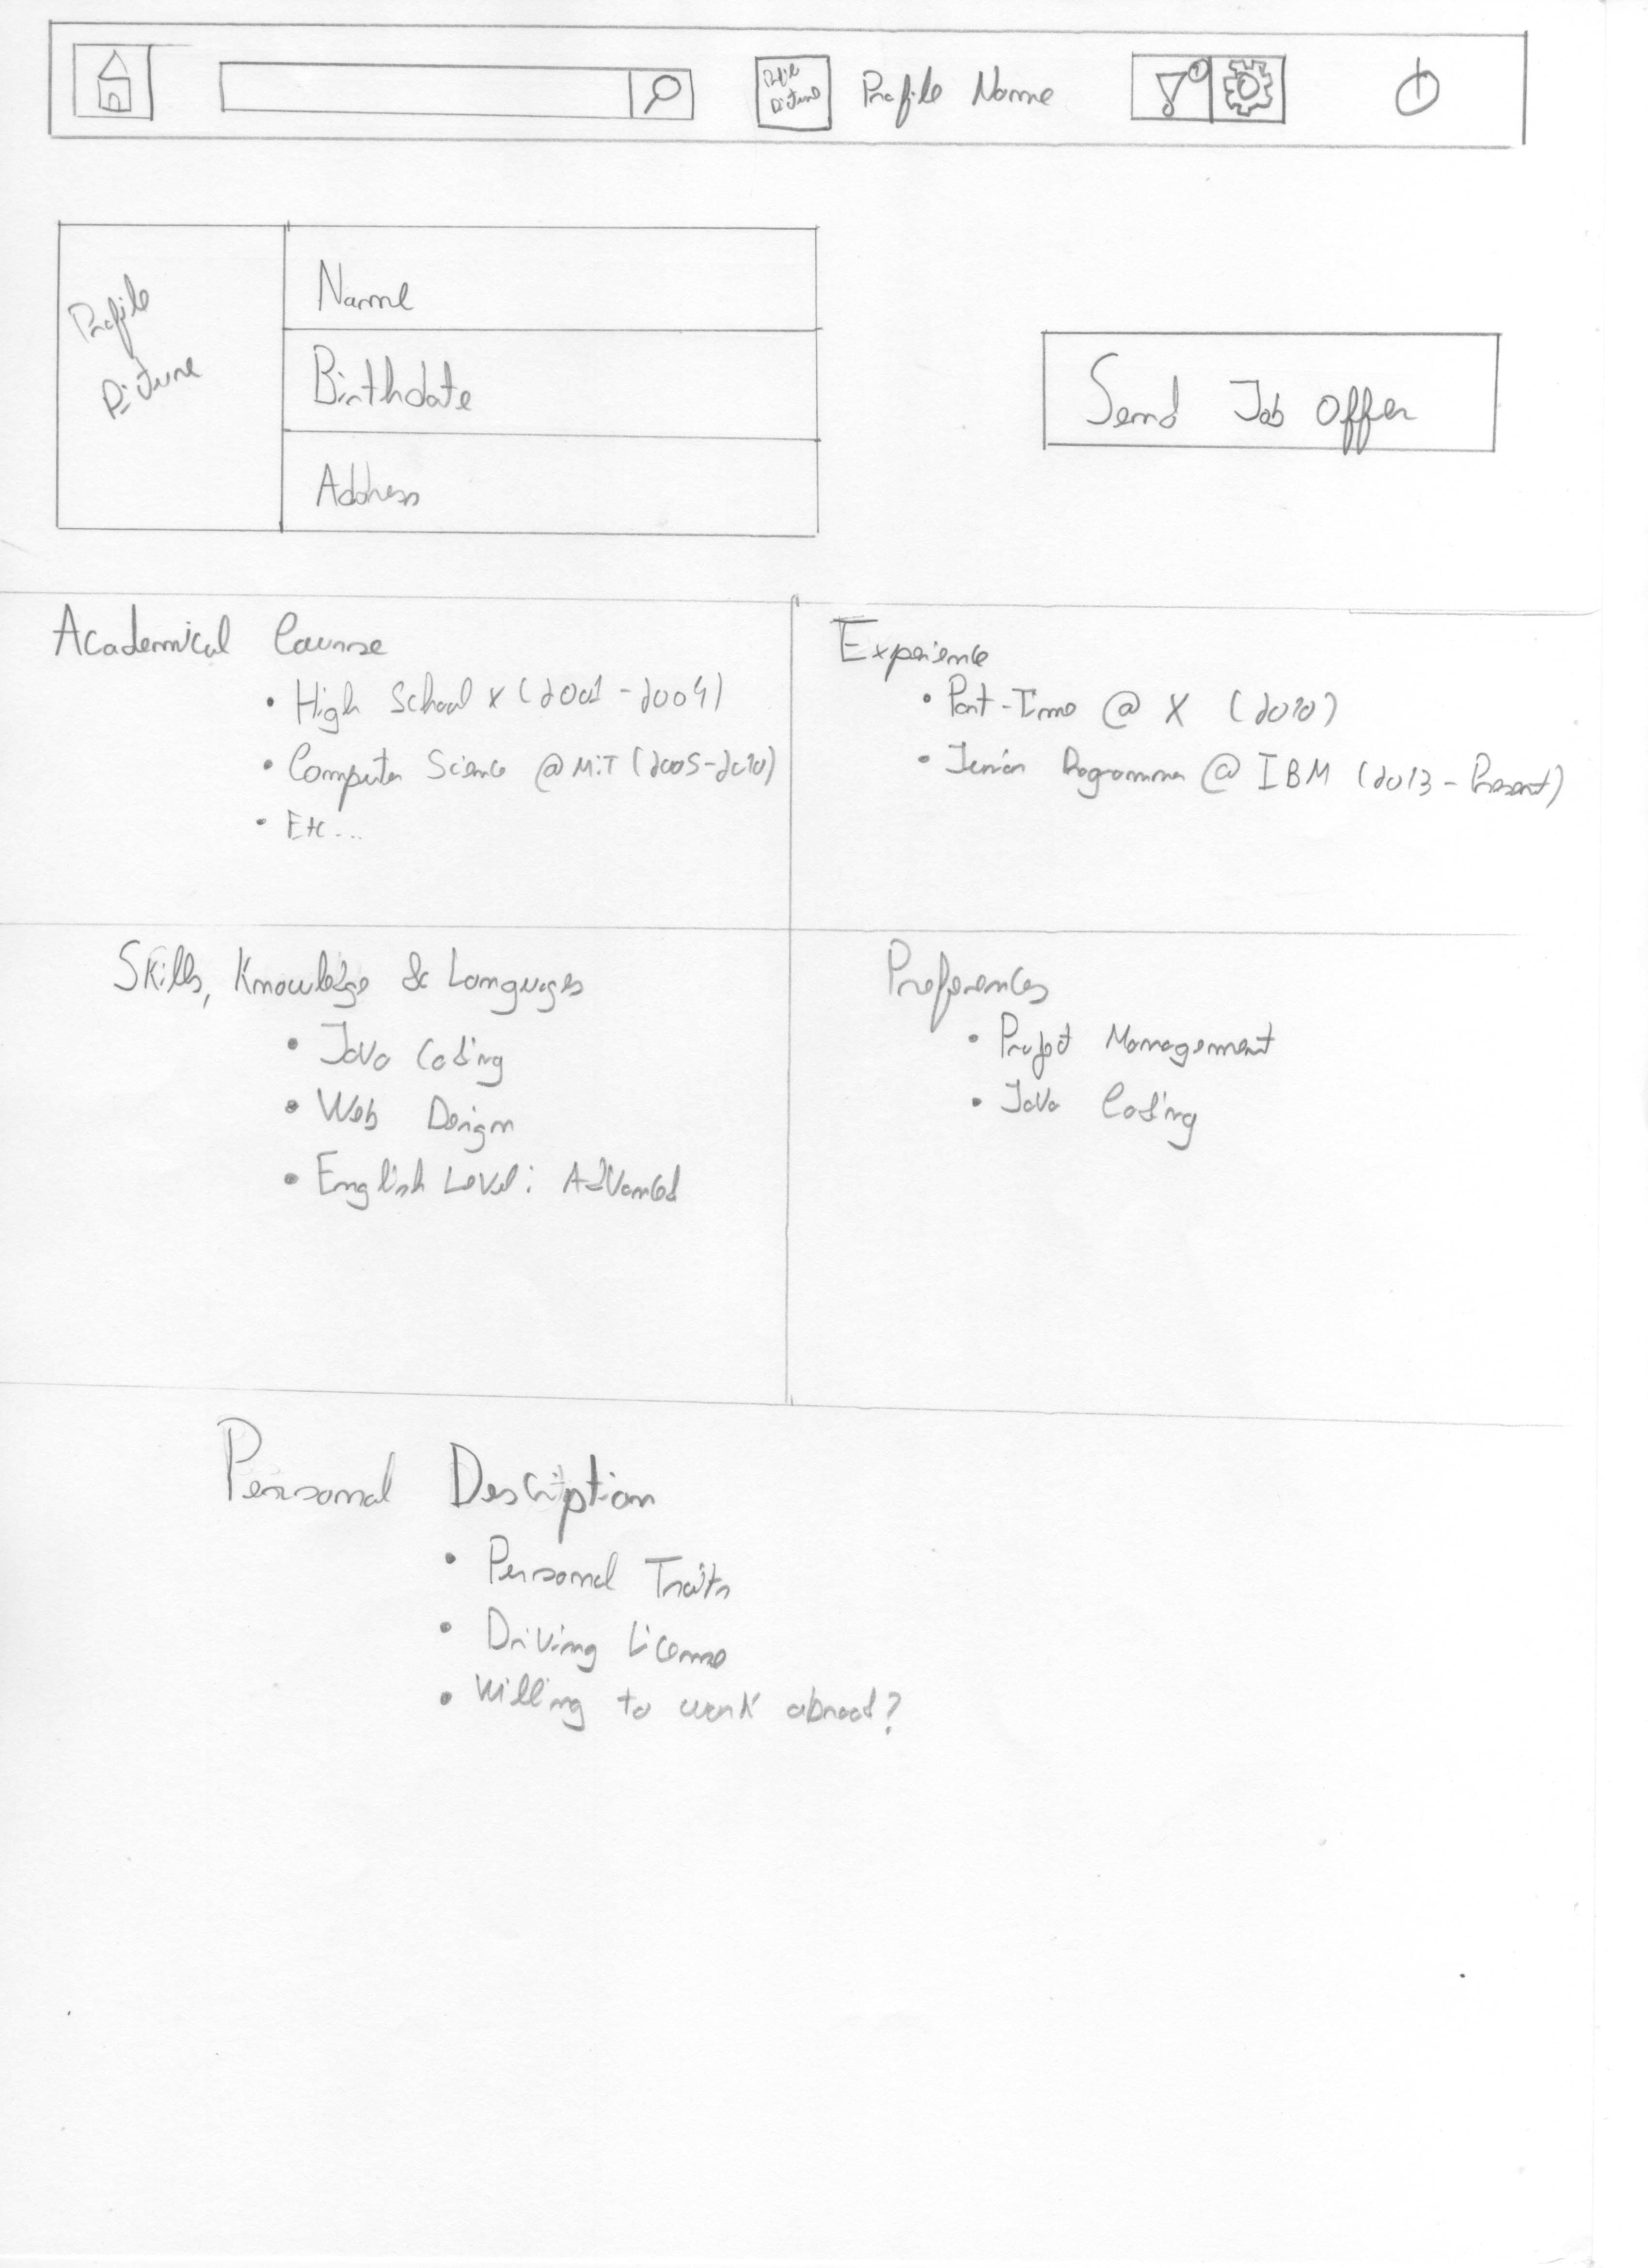 Profile
Picture
Profile Name
Profile
Picture
Name
Birthdate
Address
Send Job Offer
Academical Course
• High School X (2001 - 2004)
• Computer Science @ MiT (2005-2010)
• Etc...
Experience
• Part-Time @ X (2010)
• Junior Programmer @ IBM (2013 - Present)
Skills, Knowledge & Languages
• Java Coding
• Web Design
• English Level: Advanced
Preferences
• Project Management
• Java Coding
Personal Description
• Personal Traits
• Driving License
• Willing to work abroad?